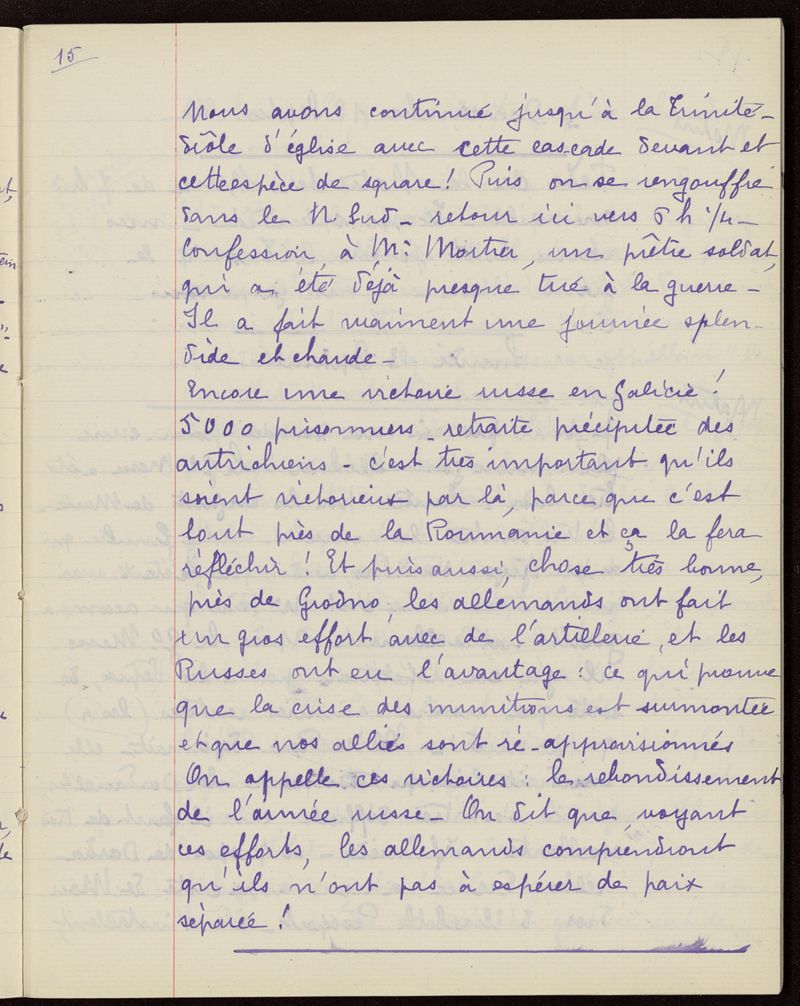 15
Nous avons continué jusqu'à la Trinité -
drôle d'église avec cette cascade devant et
cette espèce de square ! Puis on se rengouffre
dans le N. Sud - retour ici vers 6 h 1/4 -
Confession, à Mr. Mortier, un prêtre soldat,
qui a été déjà presque tué à la guerre -
Il a fait vraiment une journée splen-
dide et chaude -
Encore une victoire russe en Galicie !
5000 prisonniers - retraite précipitée des
autrichiens - c'est très important qu'ils
soient victorieux par là, parce que c'est
tout près de la Roumanie et ça la fera
réfléchir ! Et puis aussi, chose très bonne,
près de Grodno, les allemands ont fait
un gros effort avec de l'artillerie, et les
Russes ont eu l'avantage : ce qui prouve
que la crise des munitions est surmontée
et que nos alliés sont ré-approvisionnés
On appelle ces victoires : le rebondissement
de l'armée russe - On dit que, voyant
ces efforts, les allemands comprendront
qu'ils n'ont pas à espérer de paix
séparée !